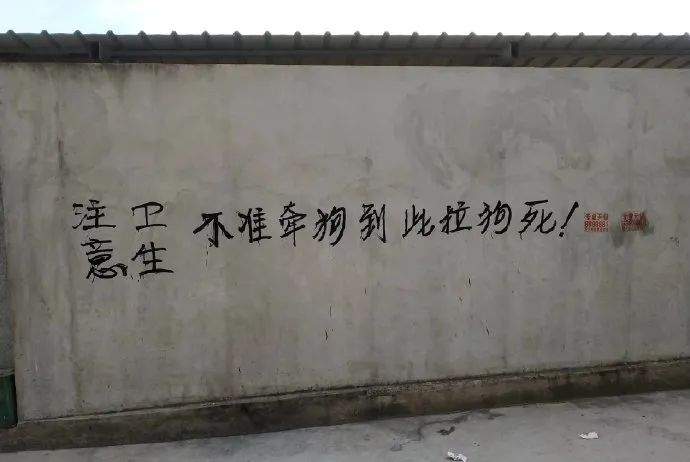 注意卫生
不准牵狗到此拉狗死！